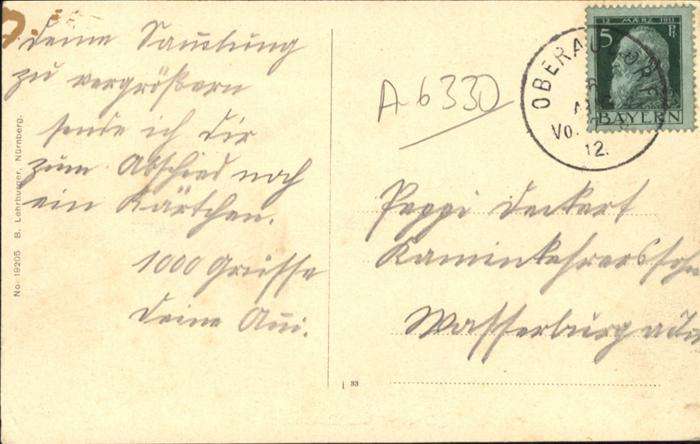 Deine Samlung
zu vergrößern
sende ich dir
zum Abschied noch
ein Kärtchen.
1000 Grüsse
Deine
A 6330
12. MÄRZ 1911
5 Pf
BAYERN
OBERAU
Vo.
12.
Peppi Deckert
Kaminkehrerssohn
Wasserburg a/Inn
No. 19205 B. Lehrburger, Nürnberg.
j 33